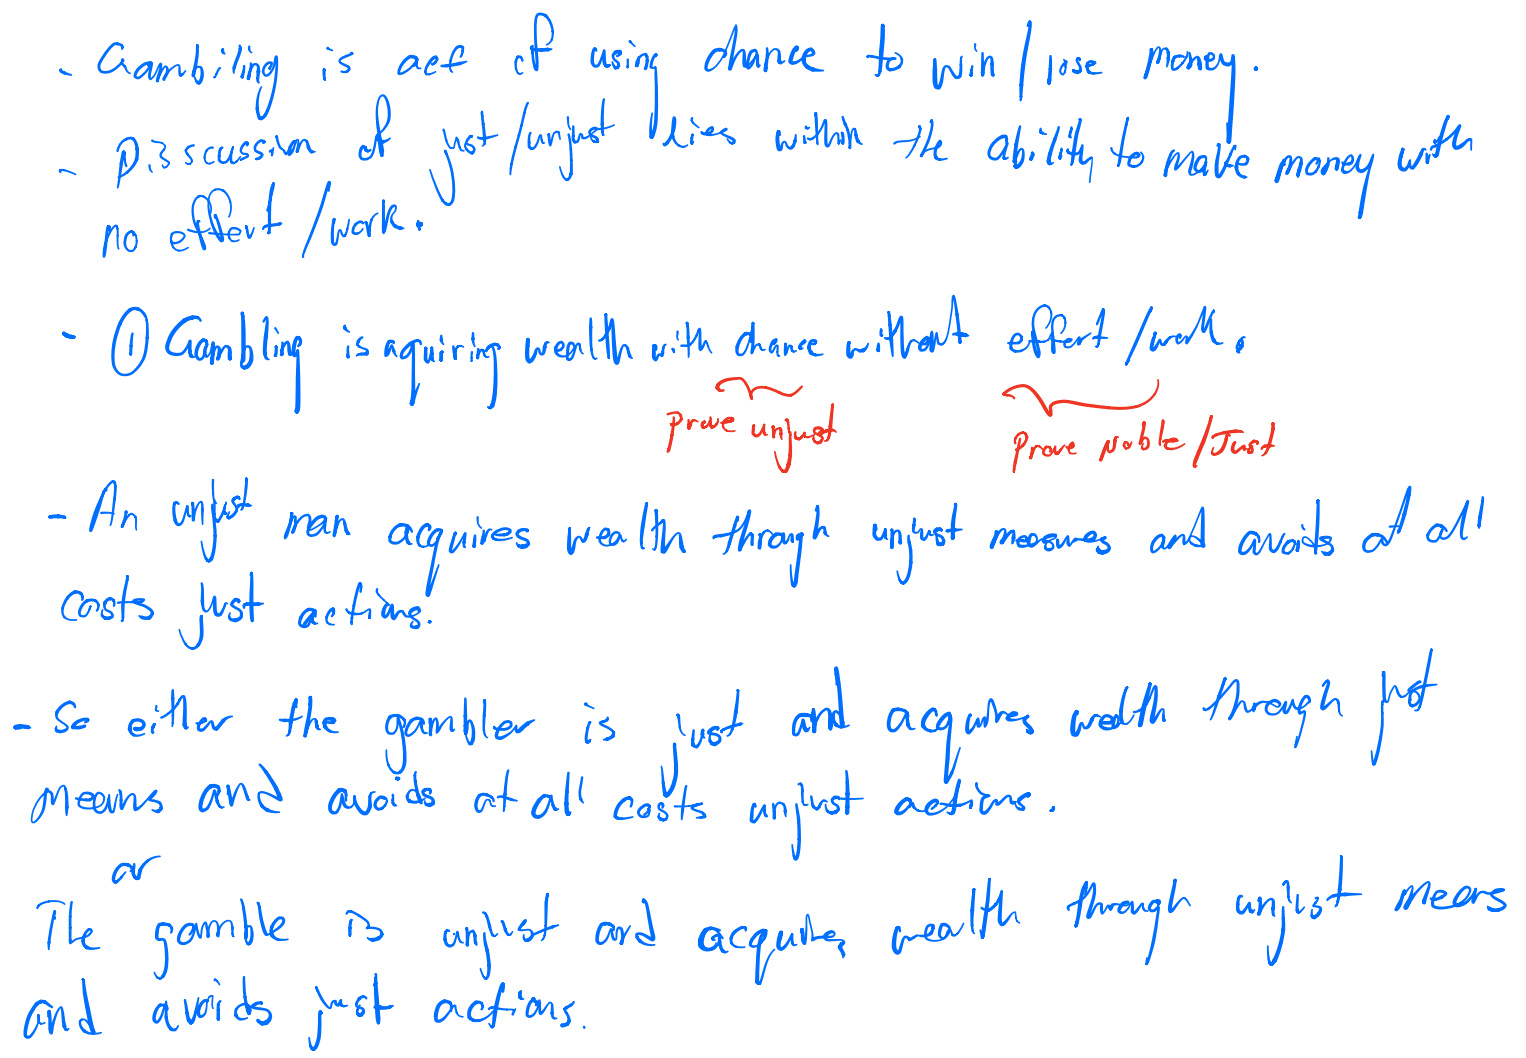 - Gambiling is act of using chance to win/lose money.
- Discussion of just/unjust lies within the ability to make money with
no effert/work.
- ① Gambling is aquiring wealth with chance without effert/work.
Prove unjust
Prove Noble/Just
- An unjust man acquires wealth through unjust measures and avoids at all
costs just actions.
- So either the gambler is just and acquires wealth through just
means and avoids at all costs unjust actions.
or
The gamble is unjust and acquires wealth through unjust means
and avoids just actions.